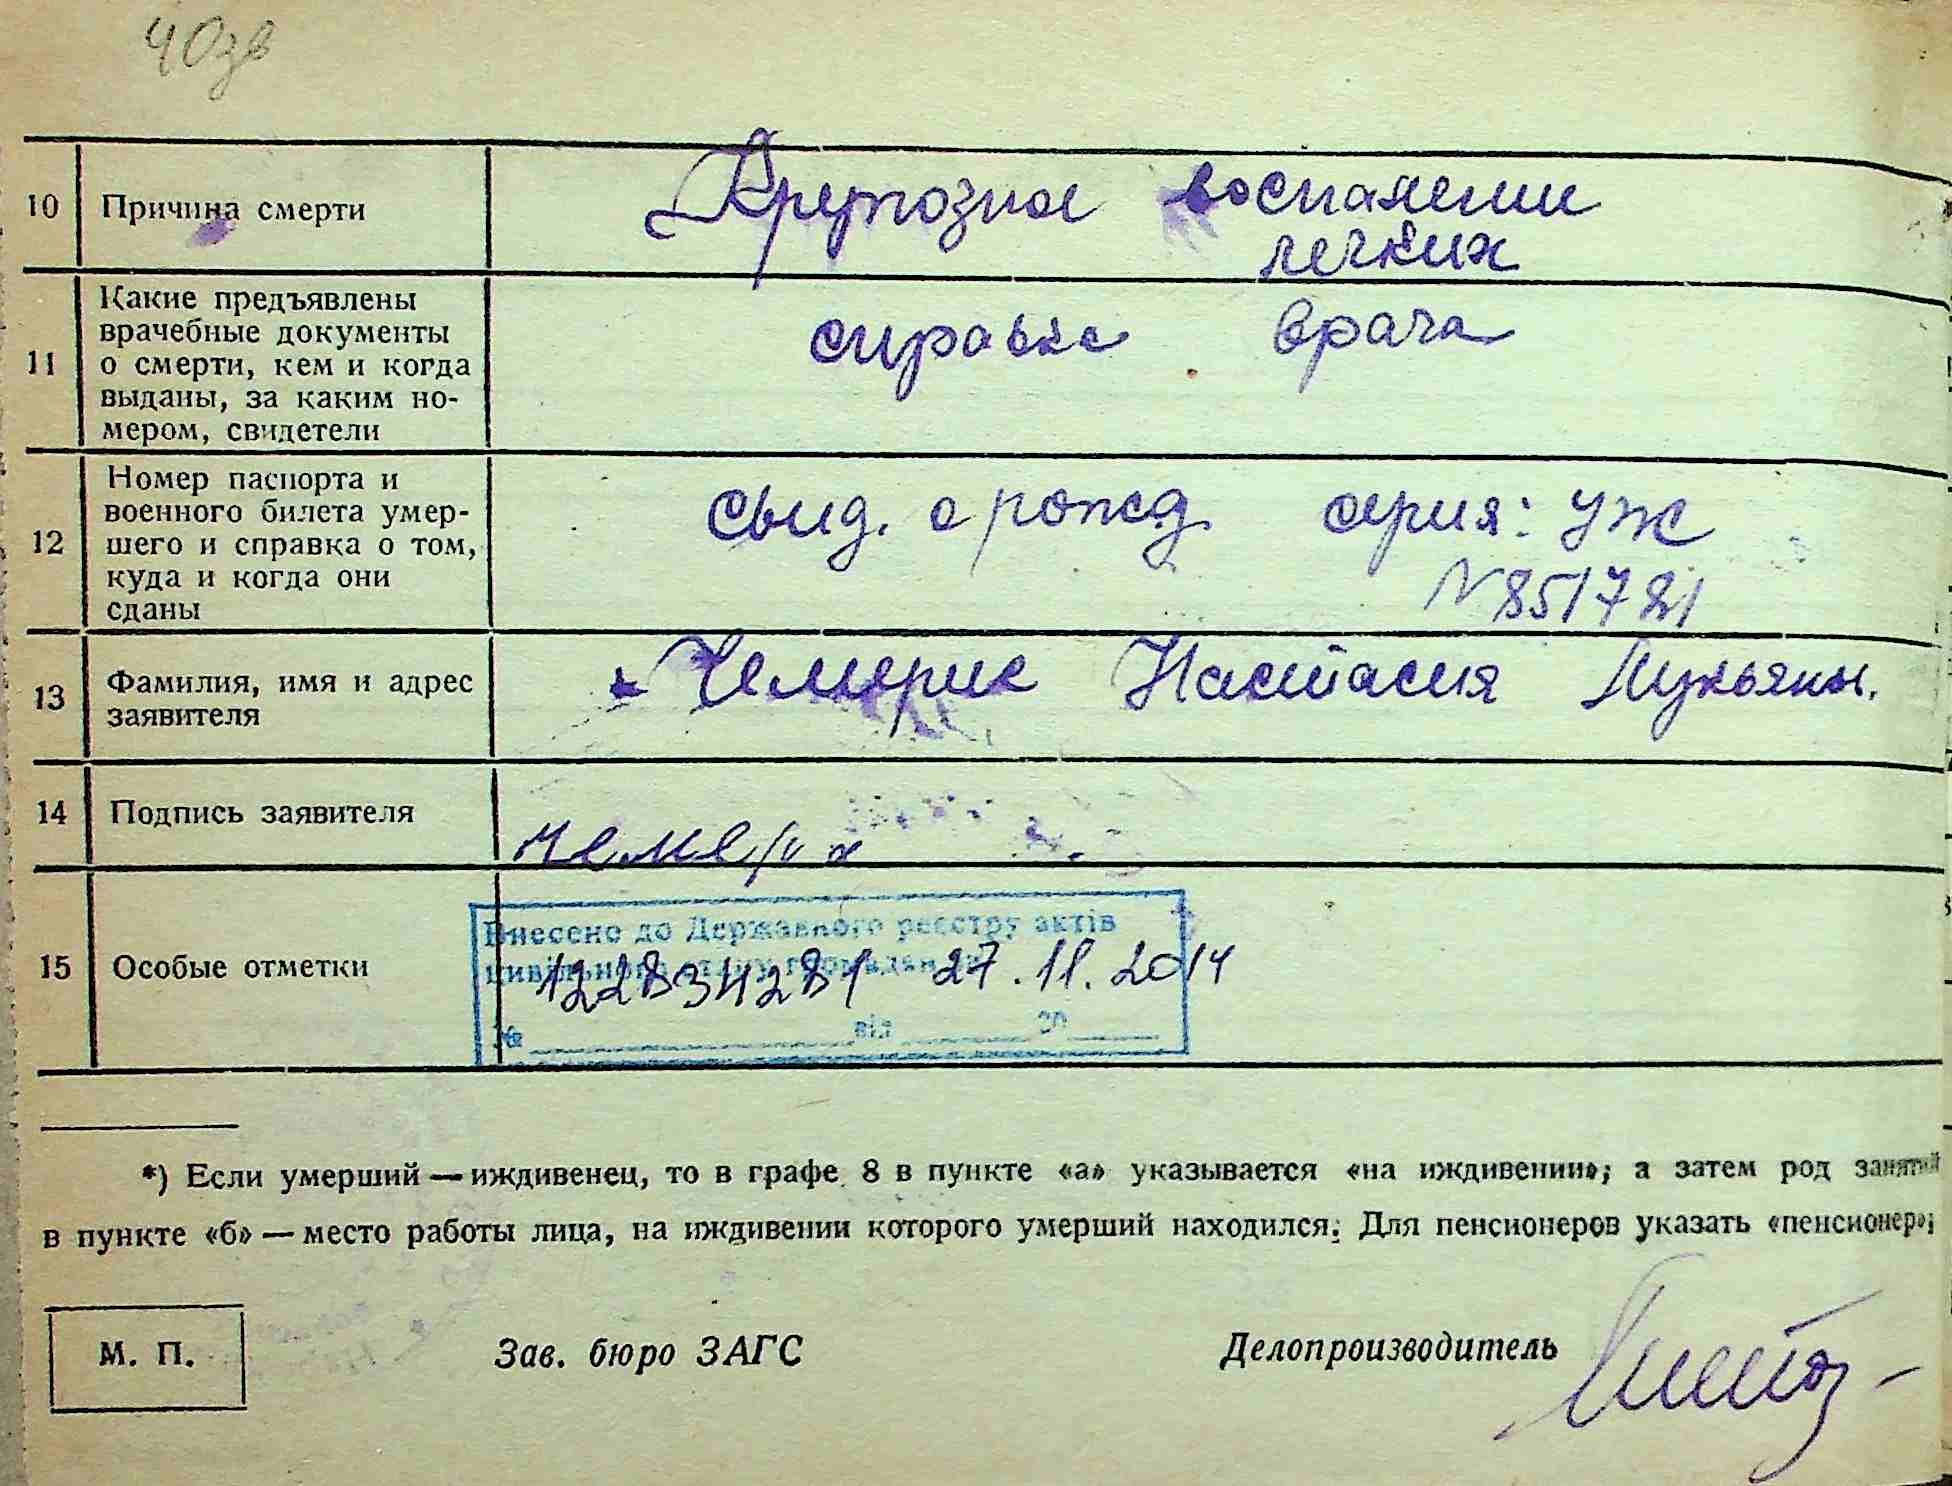 40зв
10 Причина смерти Крупозное воспаление
легких
11 Какие предъявлены
врачебные документы
о смерти, кем и когда
выданы, за каким но-
мером, свидетели
справка врача
12 Номер паспорта и
военного билета умер-
шего и справка о том,
куда и когда они
сданы
свид. о рожд серия: УЖ
N 851781
13 Фамилия, имя и адрес
заявителя
Чемерис Настасия Лукьяны.
14 Подпись заявителя
15 Особые отметки
Внесено до Державного реєстру актів
цивільного стану громадян
122834281 27.11.2014
№ від 20
*) Если умерший — иждивенец, то в графе 8 в пункте «а» указывается «на иждивении», а затем род занятий
в пункте «б» — место работы лица, на иждивении которого умерший находился. Для пенсионеров указать «пенсионер»;
М. П. Зав. бюро ЗАГС Делопроизводитель